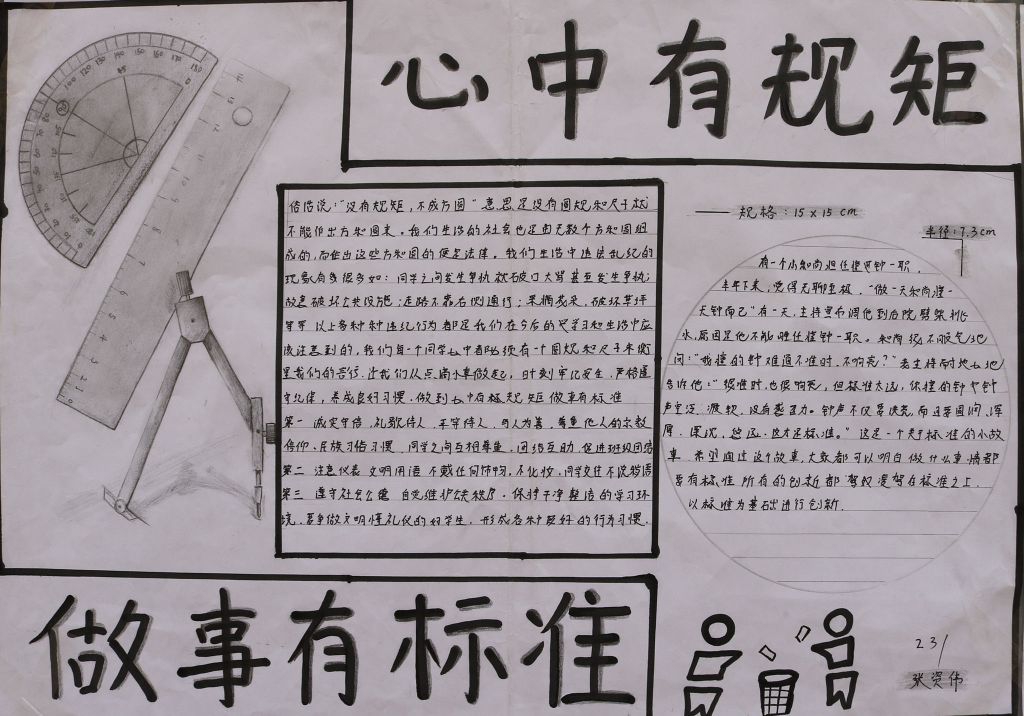 心中有规矩
俗话说："没有规矩，不成方圆"意思是没有圆规和尺子就
不能作出方和圆来。我们生活的社会也是由无数个方和圆组
成的，而作出这些方和圆的便是法律。我们生活中违法乱纪的
现象有多很多如：同学之间发生争执就破口大骂甚至发生争执；
故意破坏公共设施；走路不靠右侧通行；采摘花朵，破坏草坪
等等 以上多种种违纪行为都是我们在今后的学习和生活中应
该注意到的，我们每一个同学心中都必须有一个圆规和尺子来衡
量我们的言行。让我们从点滴小事做起，时刻牢记安全，严格遵
守纪律，养成良好习惯。做到心中有标尺规矩做事有标准
第一 诚实守信，礼敬待人，平等待人，与人为善，尊重他人的宗教
信仰、民族习俗习惯，同学之间互相尊重，团结互助，促进班级团结
第二 注意仪表 文明用语 不戴任何饰物，不化妆，同学交往不说脏话
第三 遵守社会公德 自觉维护公共秩序，保持干净整洁的学习环
境，要争做文明懂礼仪的好学生，形成各种良好的行为习惯.
—— 规格：15×15cm
半径：7.3cm
有一个小和尚担任撞钟一职，
半年下来，觉得无聊至极，"做一天和尚撞一
天钟而已"有一天，主持宣布调他到后院劈柴挑
水，原因是他不能胜任撞钟一职。和尚很不服气地
问："我撞的钟难道不准时、不响亮？"老主持耐心地
告诉他："很准时，也很响亮，但标准太远，你撞的钟
声空泛、疲软、没有感召力。钟声不仅要洪亮，而且要圆润、浑
厚、深沉、悠远。这才是标准。"这是一个关于标准的小故
事 希望通过这个故事，大家都可以明白做什么事情都
要有标准 所有的创新都 凌驾在标准之上
以标准为基础进行创新.
做事有标准
231
张资伟